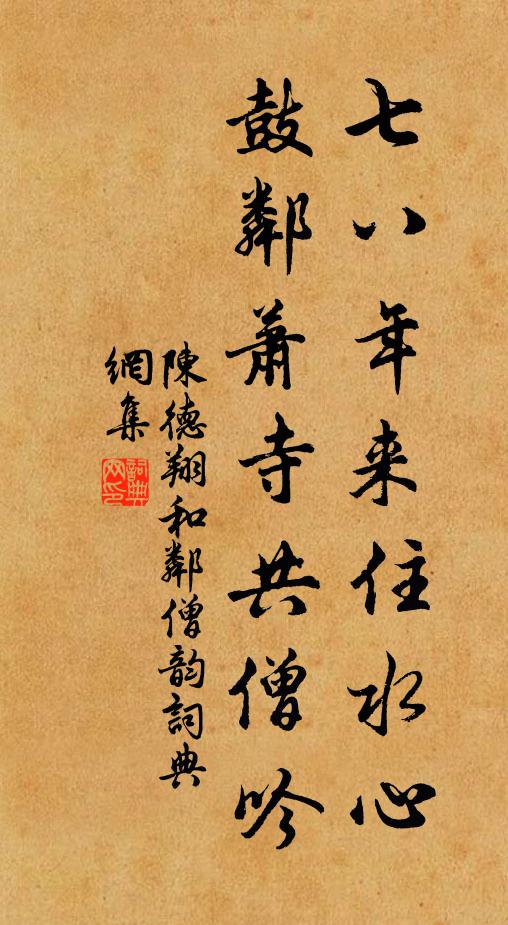 七八年来住水心
鼓鄰萧寺共僧吟
陳德翔和鄰僧韵詞典
網集
詞典
网印